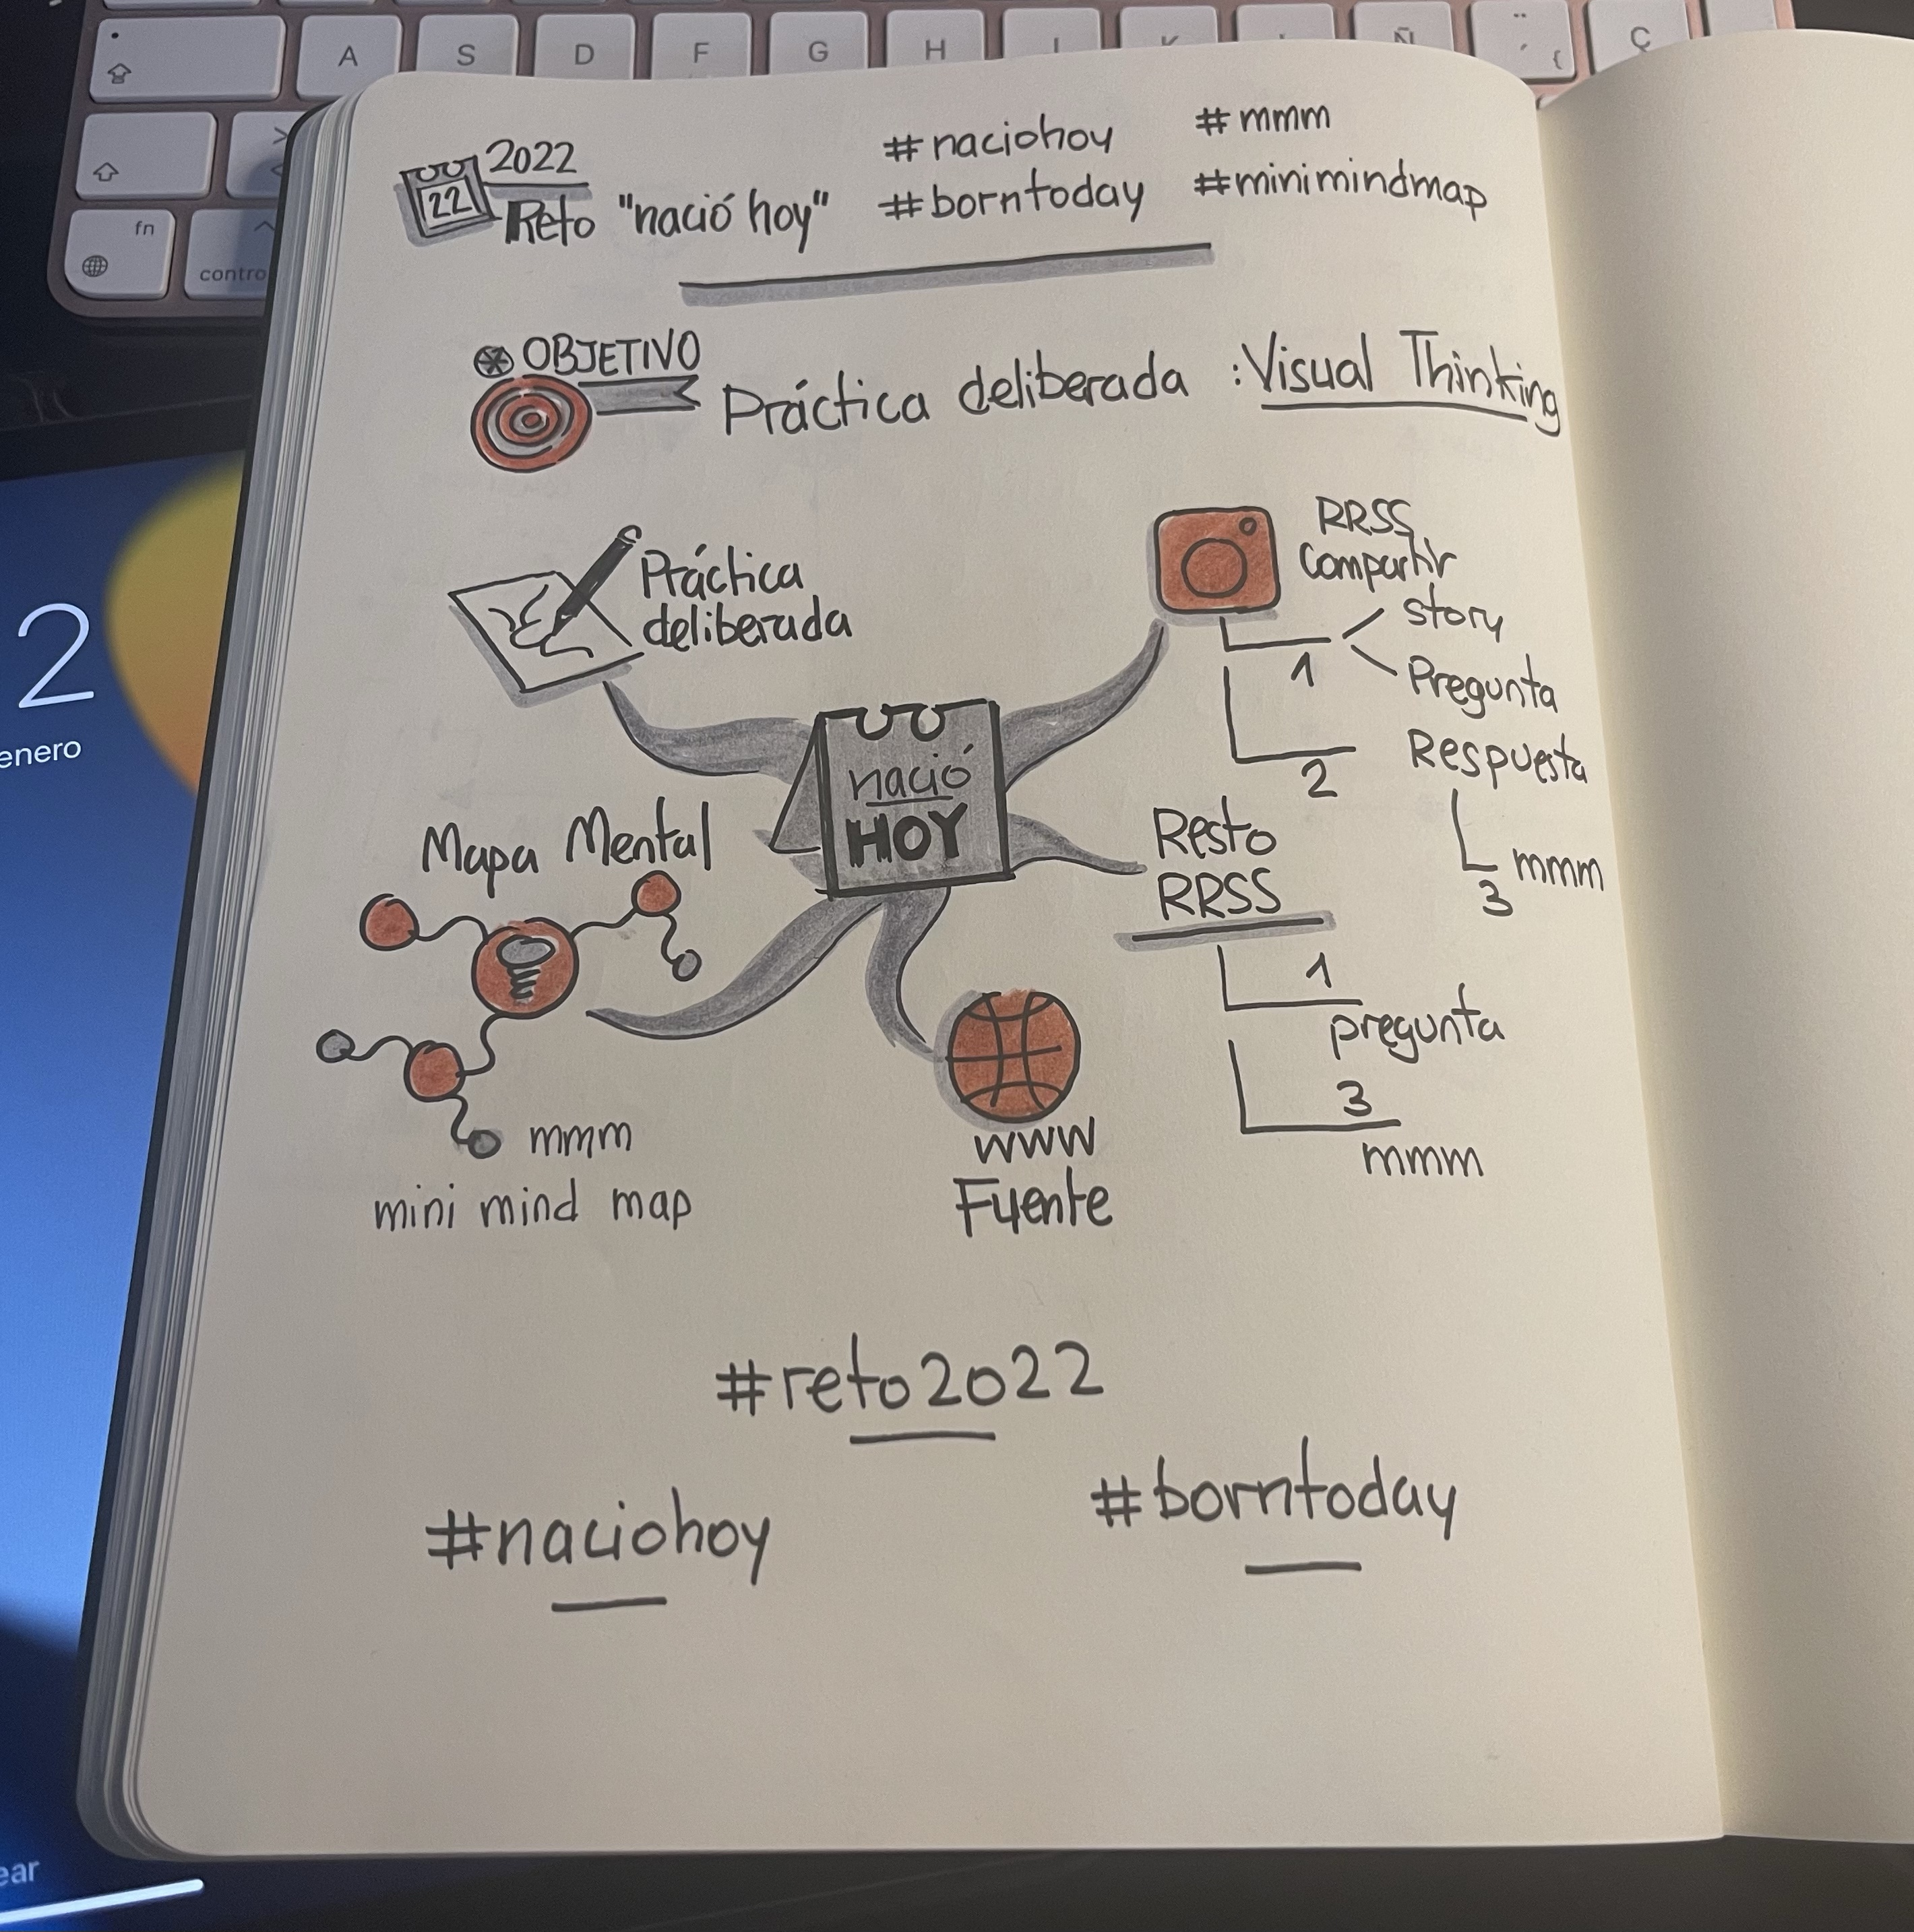 A S D F G H
Ñ
Ç
fn
contro
2022
22
Reto "nació hoy"
#naciohoy
#borntoday
#mmm
#minimindmap
OBJETIVO
Práctica deliberada : Visual Thinking
Práctica
deliberada
RRSS
Compartir
1
story
Pregunta
2
Respuesta
3
mmm
nació
HOY
Resto
RRSS
1
pregunta
3
mmm
Mapa Mental
mmm
mini mind map
www
Fuente
#reto2022
#naciohoy
#borntoday
2
enero
ear